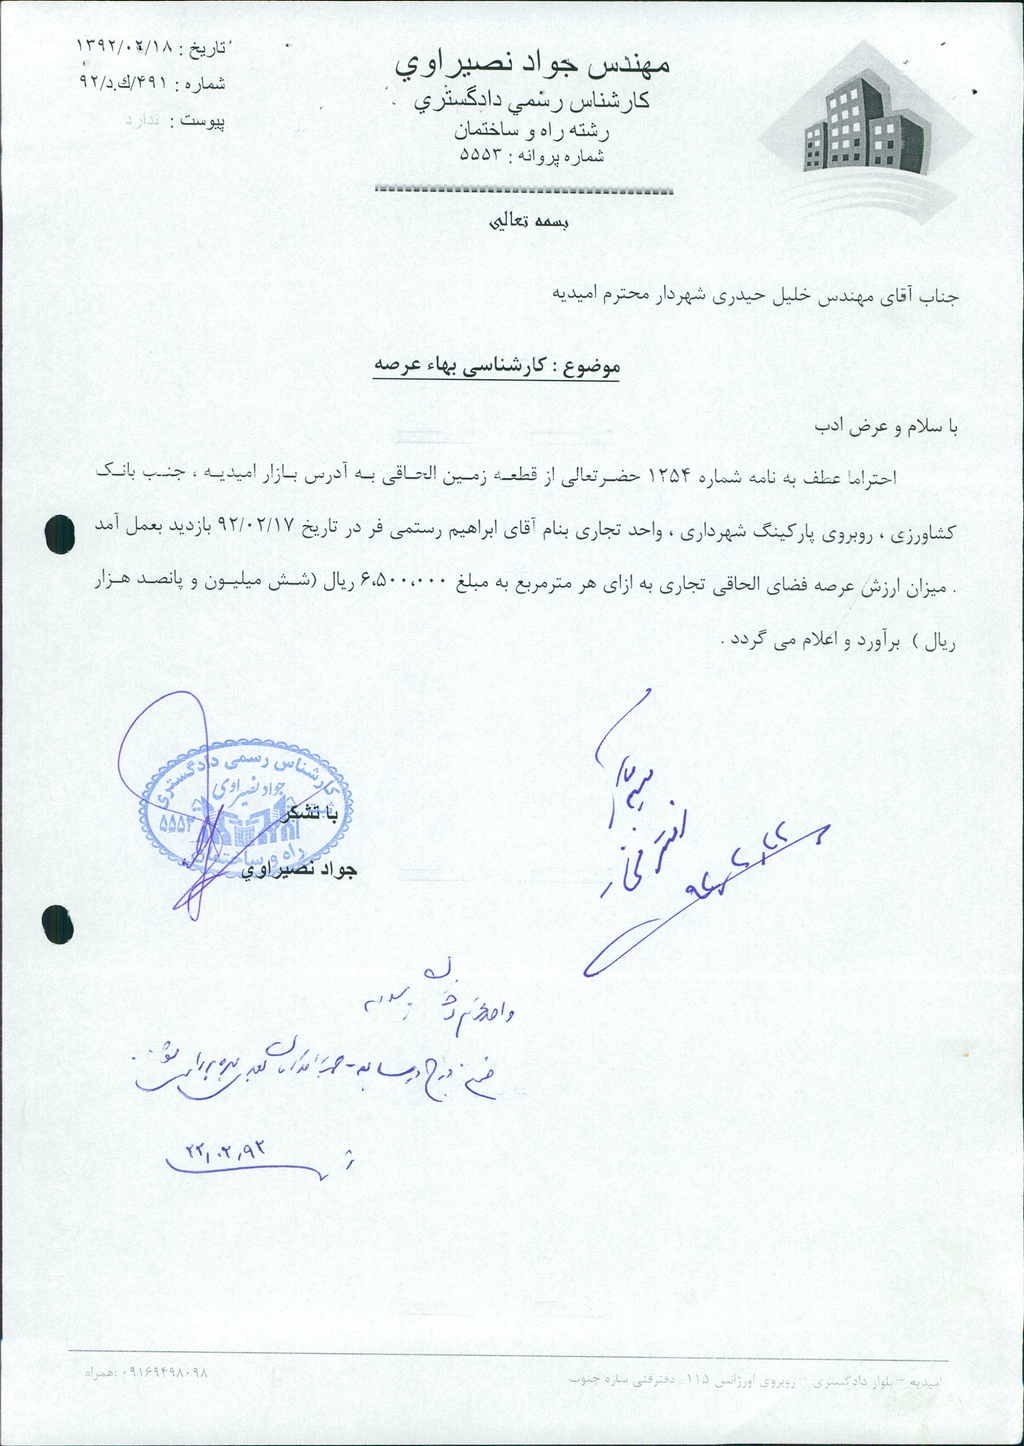 تاریخ : ۱۳۹۲/۰۲/۱۸
شماره : ۴۹۱/ك.د/۹۲
پیوست : ندارد
مهندس جواد نصیراوي
کارشناس رسمي دادگستري
رشته راه و ساختمان
شماره پروانه : ۵۵۵۳
بسمه تعالی
جناب آقای مهندس خلیل حیدری شهردار محترم امیدیه
موضوع : کارشناسی بهاء عرصه
با سلام و عرض ادب
احتراما عطف به نامه شماره ۱۲۵۴ حضرتعالی از قطعه زمین الحاقی به آدرس بازار امیدیه ، جنب بانک
کشاورزی ، روبروی پارکینگ شهرداری ، واحد تجاری بنام آقای ابراهیم رستمی فر در تاریخ ۹۲/۰۲/۱۷ بازدید بعمل آمد
. میزان ارزش عرصه فضای الحاقی تجاری به ازای هر مترمربع به مبلغ ۶،۵۰۰،۰۰۰ ریال (شش میلیون و پانصد هزار
ریال ) برآورد و اعلام می گردد .
کارشناس رسمی دادگستری
جواد نصیراوی
۵۵۵۳
راه و ساختمان
با تشکر
جواد نصیراوي
۹۲,۲,۲۲
۲۲,۰۲,۹۲
امیدیه – بلوار دادگستری – روبروی اورژانس ۱۱۵ دفترفنی سازه جنوب
همراه: ۰۹۱۶۹۴۹۸۰۹۸